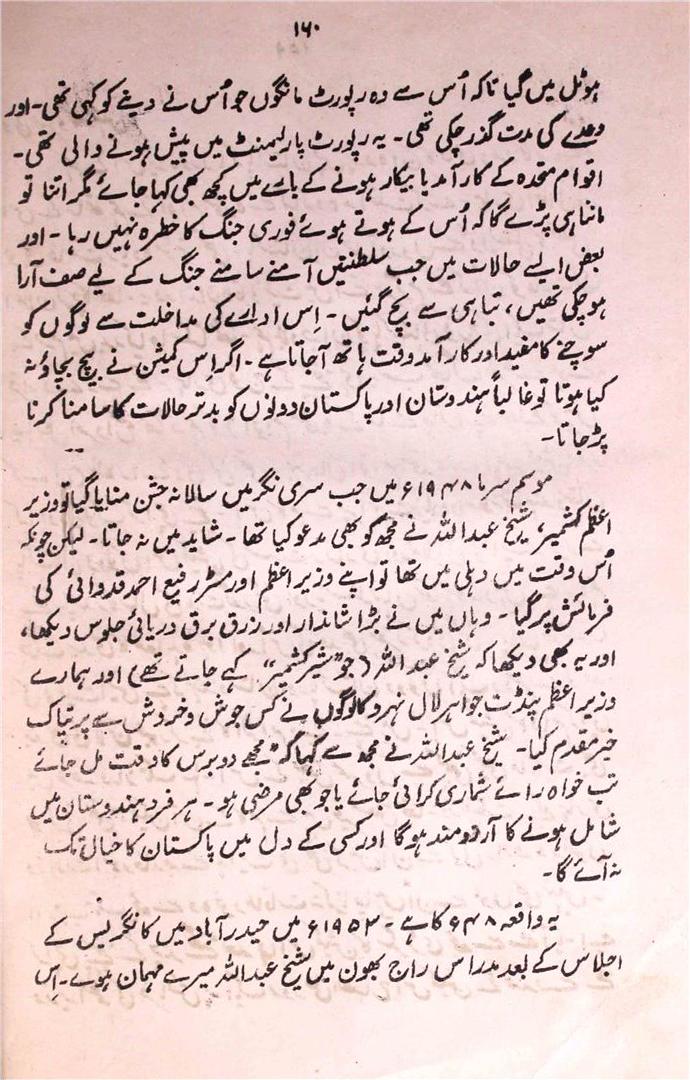 ۱۶۰
ہوٹل میں گیا تاکہ اُس سے وہ رپورٹ مانگوں جو اُس نے دینے کو کہی تھی۔ اور
وعدے کی مدت گذر چکی تھی۔ یہ رپورٹ پارلیمنٹ میں پیش ہونے والی تھی۔
اقوام متحدہ کے کارآمد یا بیکار ہونے کے بارے میں کچھ بھی کہا جائے مگر اتنا تو
ماننا ہی پڑے گا کہ اُس کے ہوتے ہوئے فوری جنگ کا خطرہ نہیں رہا۔ اور
بعض ایسے حالات میں جب سلطنتیں آمنے سامنے جنگ کے لیے صف آرا
ہو چکی تھیں، تباہی سے بچ گئیں۔ اِس ادارے کی مداخلت سے لوگوں کو
سوچنے کا مفید اور کارآمد وقت ہاتھ آجاتا ہے۔ اگر اِس کمیشن نے بیچ بچاؤ نہ
کیا ہوتا تو غالباً ہندوستان اور پاکستان دونوں کو بدتر حالات کا سامنا کرنا
پڑ جاتا۔
موسم سرما ۱۹۴۸ء میں جب سری نگر میں سالانہ جشن منایا گیا تو وزیر
اعظم کشمیر، شیخ عبداللہ نے مجھ کو بھی مدعو کیا تھا۔ شاید میں نہ جاتا۔ لیکن چونکہ
اُس وقت میں دہلی میں تھا تو اپنے وزیر اعظم اور مسٹر رفیع احمد قدوائی کی
فرمائش پر گیا۔ وہاں میں نے بڑا شاندار اور زرق برق دریائی جلوس دیکھا،
اور یہ بھی دیکھا کہ شیخ عبداللہ (جو "شیر کشمیر" کہے جاتے تھے) اور ہمارے
وزیر اعظم پنڈت جواہر لال نہرو کا لوگوں نے کس جوش و خروش سے پرتپاک
خیر مقدم کیا۔ شیخ عبداللہ نے مجھ سے کہا کہ "مجھے دو برس کا وقت مل جائے
تب خواہ رائے شماری کرائی جائے یا جو بھی مرضی ہو۔ ہر فرد ہندوستان میں
شامل ہونے کا آرزومند ہوگا اور کسی کے دل میں پاکستان کا خیال تک
نہ آئے گا۔
یہ واقعہ ۴۸ء کا ہے۔ ۱۹۵۳ء میں حیدرآباد میں کانگریس کے
اجلاس کے بعد مدراس راج بھون میں شیخ عبداللہ میرے مہمان ہوے۔ اِس